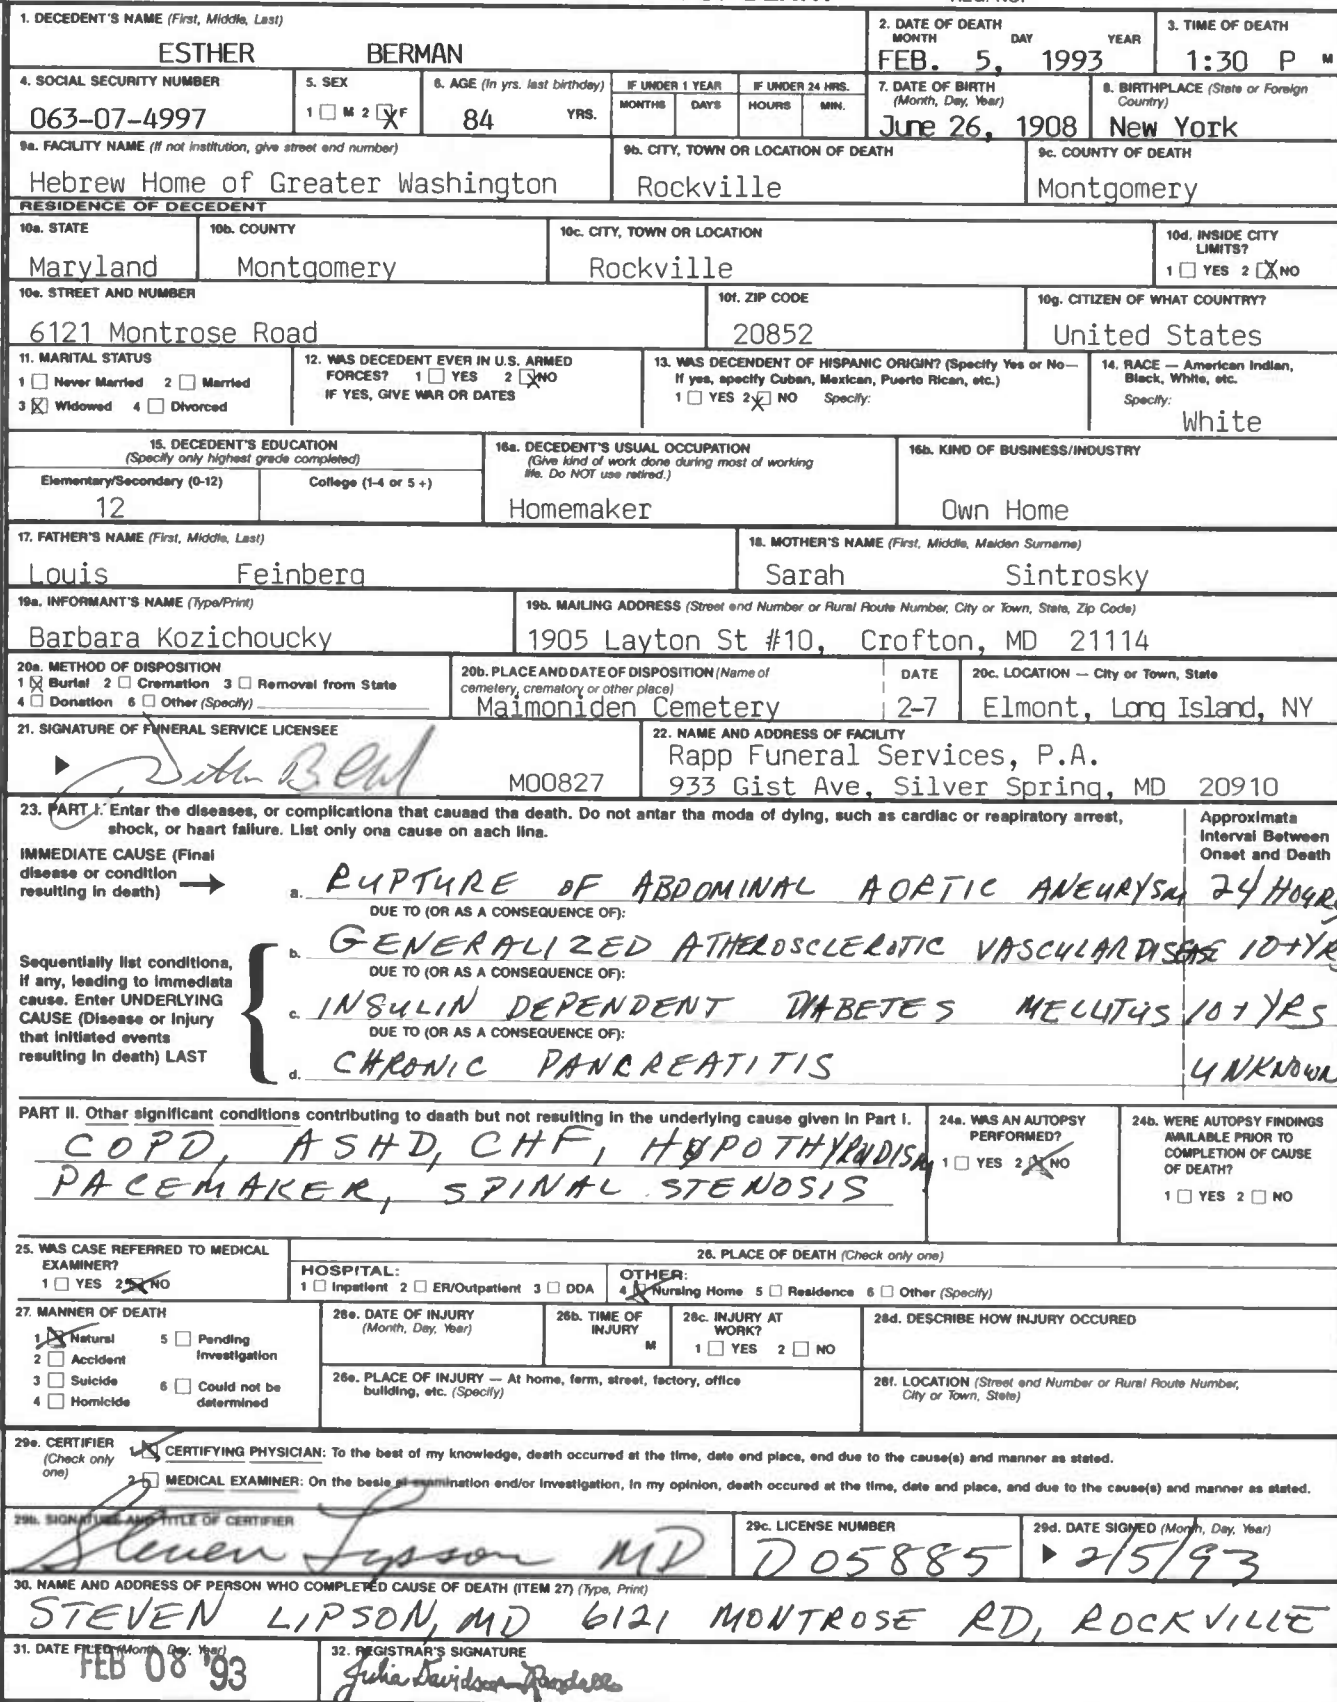 1. DECEDENT'S NAME (First, Middle, Last)
ESTHER BERMAN
2. DATE OF DEATH
MONTH DAY YEAR
FEB. 5, 1993
3. TIME OF DEATH
1:30 P M
4. SOCIAL SECURITY NUMBER
063-07-4997
5. SEX
1 ☐ M 2 ☒ F
6. AGE (In yrs. last birthday)
84 YRS.
IF UNDER 1 YEAR
MONTHS DAYS
IF UNDER 24 HRS.
HOURS MIN.
7. DATE OF BIRTH
(Month, Day, Year)
June 26, 1908
8. BIRTHPLACE (State or Foreign
Country)
New York
9a. FACILITY NAME (If not institution, give street and number)
Hebrew Home of Greater Washington
9b. CITY, TOWN OR LOCATION OF DEATH
Rockville
9c. COUNTY OF DEATH
Montgomery
RESIDENCE OF DECEDENT
10a. STATE
Maryland
10b. COUNTY
Montgomery
10c. CITY, TOWN OR LOCATION
Rockville
10d. INSIDE CITY
LIMITS?
1 ☐ YES 2 ☒ NO
10e. STREET AND NUMBER
6121 Montrose Road
10f. ZIP CODE
20852
10g. CITIZEN OF WHAT COUNTRY?
United States
11. MARITAL STATUS
1 ☐ Never Married 2 ☐ Married
3 ☒ Widowed 4 ☐ Divorced
12. WAS DECEDENT EVER IN U.S. ARMED
FORCES? 1 ☐ YES 2 ☒ NO
IF YES, GIVE WAR OR DATES
13. WAS DECENDENT OF HISPANIC ORIGIN? (Specify Yes or No—
If yes, specify Cuban, Mexican, Puerto Rican, etc.)
1 ☐ YES 2 ☒ NO Specify:
14. RACE — American Indian,
Black, White, etc.
Specify:
White
15. DECEDENT'S EDUCATION
(Specify only highest grade completed)
Elementary/Secondary (0-12) College (1-4 or 5 +)
12
16a. DECEDENT'S USUAL OCCUPATION
(Give kind of work done during most of working
life. Do NOT use retired.)
Homemaker
16b. KIND OF BUSINESS/INDUSTRY
Own Home
17. FATHER'S NAME (First, Middle, Last)
Louis Feinberg
18. MOTHER'S NAME (First, Middle, Maiden Surname)
Sarah Sintrosky
19a. INFORMANT'S NAME (Type/Print)
Barbara Kozichoucky
19b. MAILING ADDRESS (Street and Number or Rural Route Number, City or Town, State, Zip Code)
1905 Layton St #10, Crofton, MD 21114
20a. METHOD OF DISPOSITION
1 ☒ Burial 2 ☐ Cremation 3 ☐ Removal from State
4 ☐ Donation 6 ☐ Other (Specify)
20b. PLACE AND DATE OF DISPOSITION (Name of
cemetery, crematory or other place)
Maimoniden Cemetery
DATE
2-7
20c. LOCATION — City or Town, State
Elmont, Long Island, NY
21. SIGNATURE OF FUNERAL SERVICE LICENSEE
M00827
22. NAME AND ADDRESS OF FACILITY
Rapp Funeral Services, P.A.
933 Gist Ave, Silver Spring, MD 20910
23. PART I. Enter the diseases, or complications that caused the death. Do not enter the mode of dying, such as cardiac or respiratory arrest,
shock, or heart failure. List only one cause on each line.
Approximate
Interval Between
Onset and Death
IMMEDIATE CAUSE (Final
disease or condition
resulting in death)
a. RUPTURE OF ABDOMINAL AORTIC ANEURYSM 24 HOURS
DUE TO (OR AS A CONSEQUENCE OF):
b. GENERALIZED ATHEROSCLEROTIC VASCULAR DISEASE 10+YR
DUE TO (OR AS A CONSEQUENCE OF):
Sequentially list conditions,
if any, leading to immediate
cause. Enter UNDERLYING
CAUSE (Disease or injury
that initiated events
resulting in death) LAST
c. INSULIN DEPENDENT DIABETES MELLITUS 10+ YRS
DUE TO (OR AS A CONSEQUENCE OF):
d. CHRONIC PANCREATITIS UNKNOWN
PART II. Other significant conditions contributing to death but not resulting in the underlying cause given in Part I.
COPD, ASHD, CHF, HYPOTHYROIDISM
PACEMAKER, SPINAL STENOSIS
24a. WAS AN AUTOPSY
PERFORMED?
1 ☐ YES 2 ☒ NO
24b. WERE AUTOPSY FINDINGS
AVAILABLE PRIOR TO
COMPLETION OF CAUSE
OF DEATH?
1 ☐ YES 2 ☐ NO
25. WAS CASE REFERRED TO MEDICAL
EXAMINER?
1 ☐ YES 2 ☒ NO
26. PLACE OF DEATH (Check only one)
HOSPITAL:
1 ☐ Inpatient 2 ☐ ER/Outpatient 3 ☐ DOA
OTHER:
4 ☒ Nursing Home 5 ☐ Residence 6 ☐ Other (Specify)
27. MANNER OF DEATH
1 ☒ Natural 5 ☐ Pending
Investigation
2 ☐ Accident
3 ☐ Suicide 6 ☐ Could not be
determined
4 ☐ Homicide
28a. DATE OF INJURY
(Month, Day, Year)
28b. TIME OF
INJURY
M
28c. INJURY AT
WORK?
1 ☐ YES 2 ☐ NO
28d. DESCRIBE HOW INJURY OCCURED
28e. PLACE OF INJURY — At home, farm, street, factory, office
building, etc. (Specify)
28f. LOCATION (Street and Number or Rural Route Number,
City or Town, State)
29a. CERTIFIER
(Check only
one)
1 ☒ CERTIFYING PHYSICIAN: To the best of my knowledge, death occurred at the time, date and place, and due to the cause(s) and manner as stated.
2 ☐ MEDICAL EXAMINER: On the basis of examination and/or investigation, in my opinion, death occured at the time, date and place, and due to the cause(s) and manner as stated.
29b. SIGNATURE AND TITLE OF CERTIFIER
Steven Lipson MD
29c. LICENSE NUMBER
D05885
29d. DATE SIGNED (Month, Day, Year)
2/5/93
30. NAME AND ADDRESS OF PERSON WHO COMPLETED CAUSE OF DEATH (ITEM 27) (Type, Print)
STEVEN LIPSON, MD 6121 MONTROSE RD, ROCKVILLE
31. DATE FILED (Month, Day, Year)
FEB 08 '93
32. REGISTRAR'S SIGNATURE
Julia Davidson-Randall